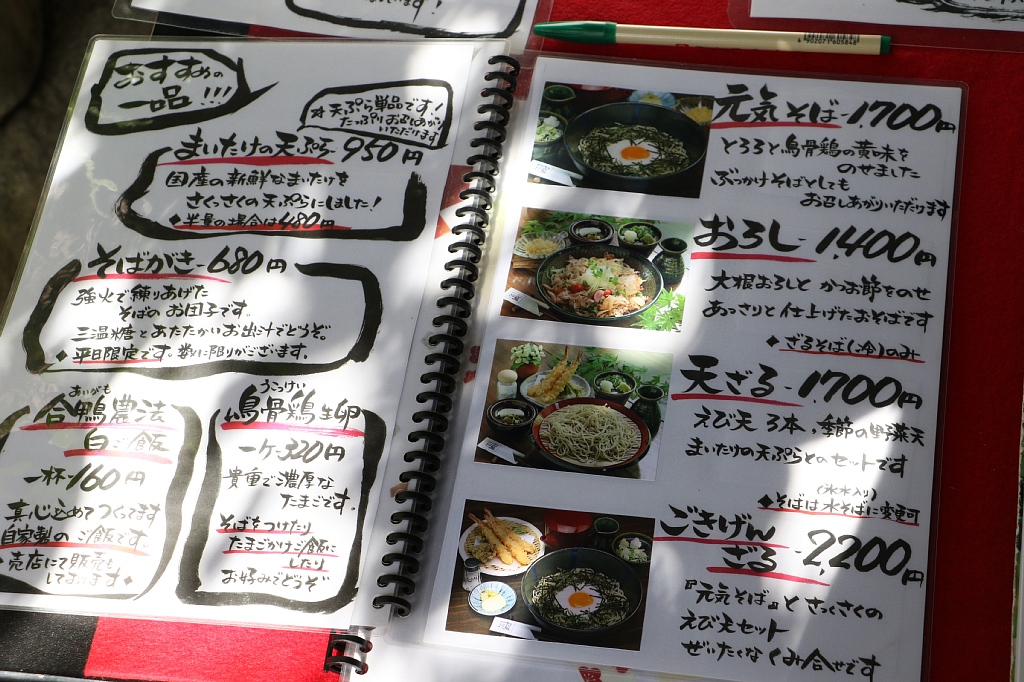 おすすめの
一品!!!
☆天ぷら単品です!
たっぷりお召しあがり
いただけます
まいたけの天ぷら 950円
国産の新鮮なまいたけを
さくっさくの天ぷらにしました!
◆半量の場合は480円
そばがき-680円
強火で練りあげた
そばのお団子です。
三温糖とあたたかいお出汁でどうぞ。
◆平日限定です。数に限りがございます。
あいがも
合鴨農法
白ご飯
一杯-160円
真心込めてつくってます
自家製のご飯です。
・売店にて販売も
しております◆
うこっけい
烏骨鶏生卵
一ケ-320円
貴重で濃厚な
たまごです。
そばをつけたり
たまごかけご飯に
したり
お好みでどうぞ
4902071605848
元気そば-1,700円
とろろと烏骨鶏の黄味を
のせました
ぶっかけそばとしても
お召しあがりいただけます
おろし-1,400円
大根おろしとかつお節をのせ
あっさりと仕上げたおそばです
◆ざるそば(冷)のみ
天ざる-1,700円
えび天3本・季節の野菜天
まいたけの天ぷらとのセットです
(氷水入り)
◆そばは水そばに変更可
ごきげん
ざる-2,200円
『元気そば』とさくさくの
えび天セット
ぜいたくなくみ合せです